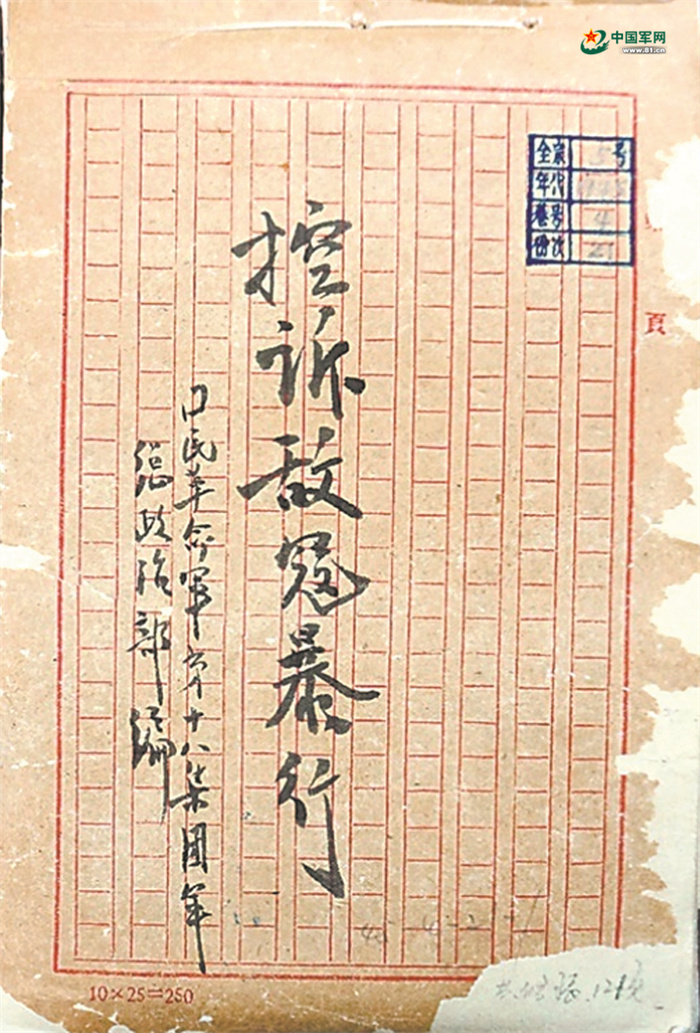 中国军网
www.81.cn
全宗 号
年代
卷号 4
份次 21
頁
控诉敌寇暴行
口民革命军第十八集团军
总政治部编
45-4-21-1
10×25=250